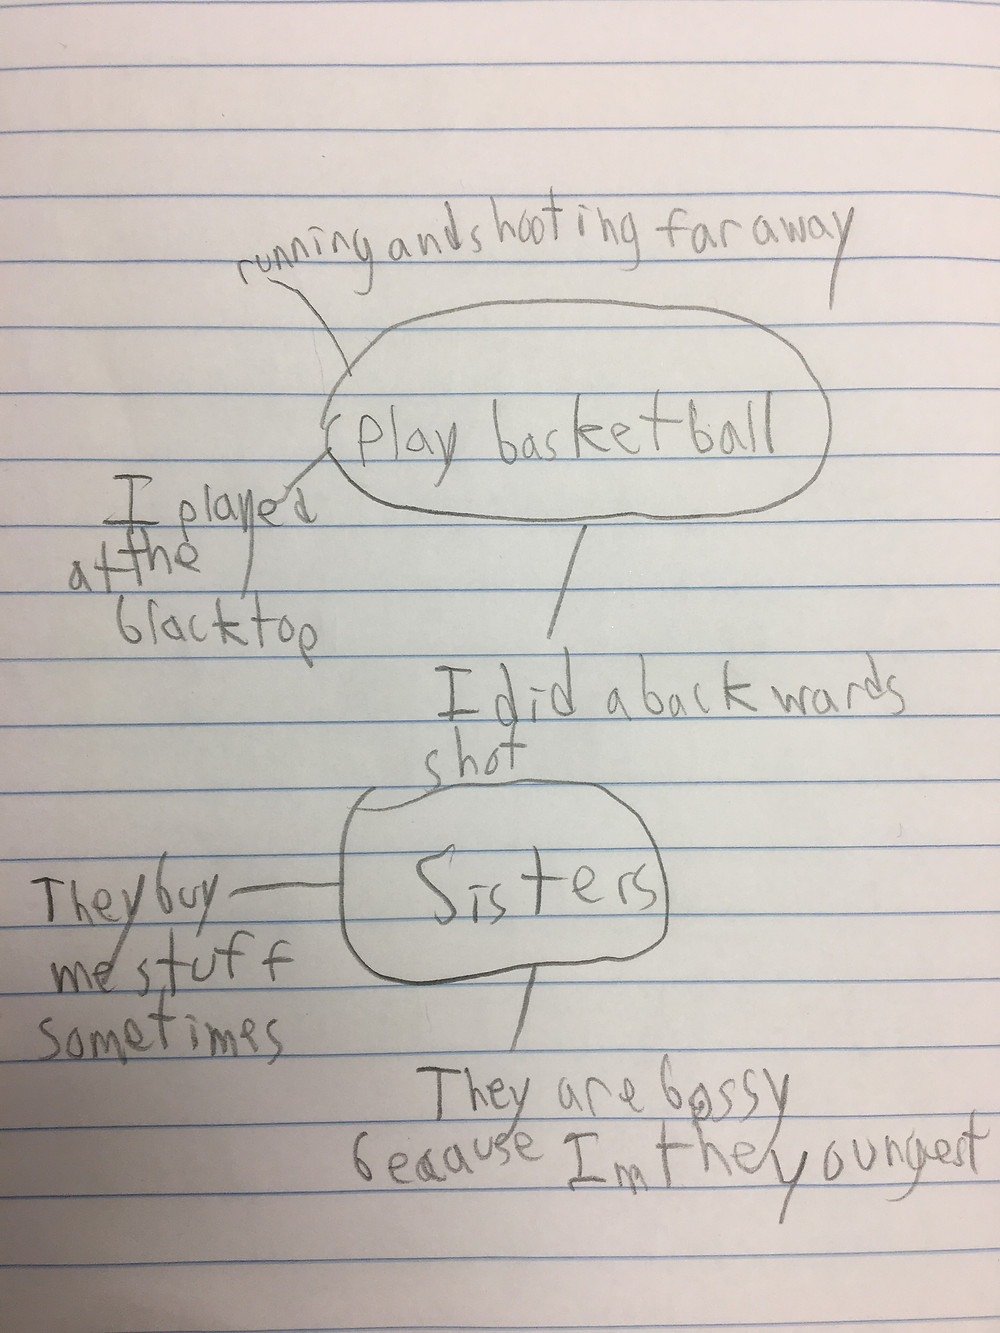 running and shooting far away
play basketball
I played
at the
blacktop
I did a backwards
shot
Sisters
They buy
me stuff
sometimes
They are bossy
because Im the youngest